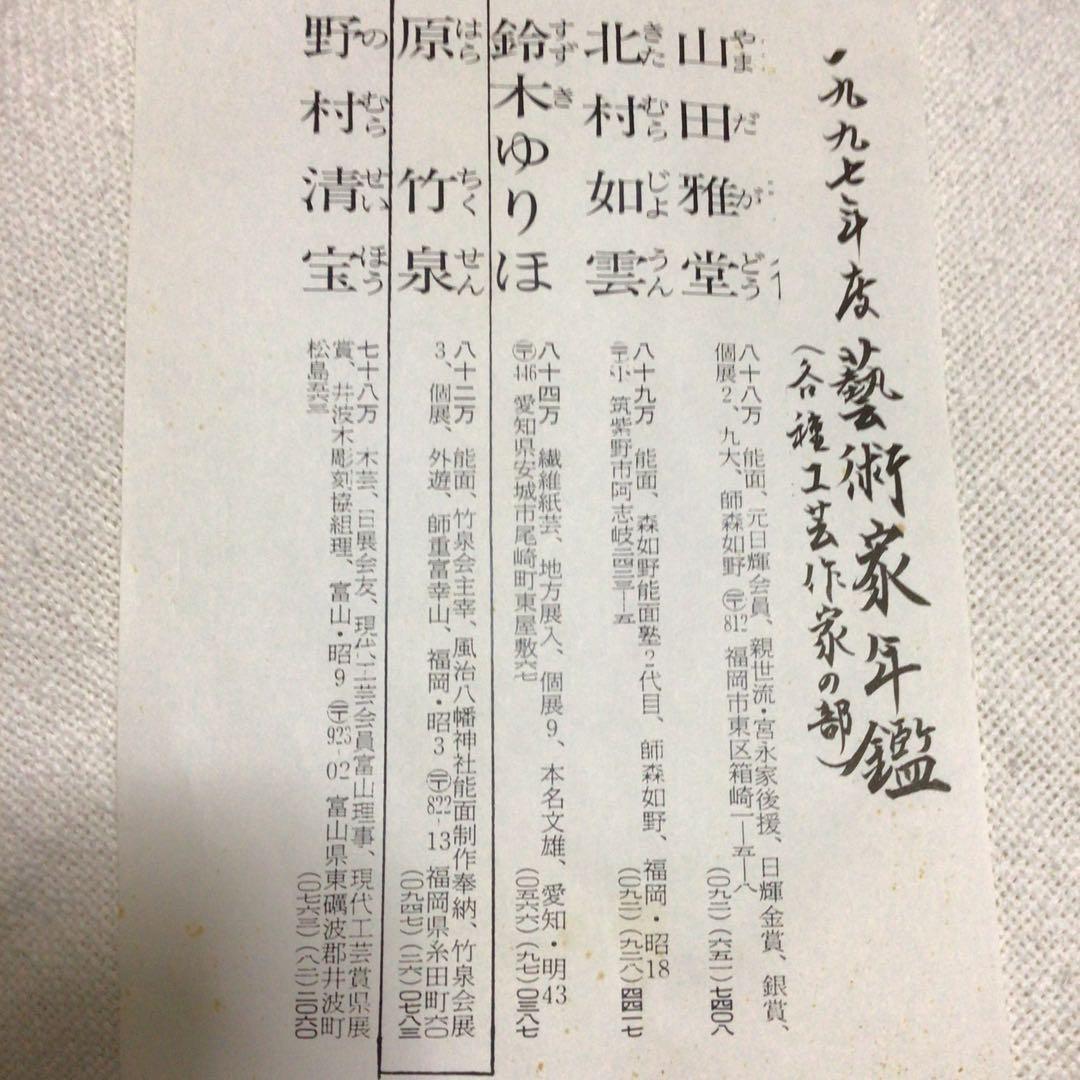 一九九七年度 藝術家年鑑
(各種工芸作家の部)
山田雅堂
やまだがどう
八十八万 能面、元日輝会員、親世流・宮永家後援、日輝金賞、銀賞、
個展2、九大、師森如野 〒812 福岡市東区箱崎一―五―八
(〇九二)(六五一)七四〇八
北村如雲
きたむらじようん
八十九万 能面、森如野能面塾2代目、師森如野、福岡・昭18
筑紫野市阿志岐二四三三―五
(〇九二)(九二八)四四一七
鈴木ゆりほ
すずき
八十四万 繊維紙芸、地方展入、個展9、本名文雄、愛知・明43
〒446 愛知県安城市尾崎町東屋敷六七
(〇五六六)(九七)〇三八七
原竹泉
はらちくせん
八十二万 能面、竹泉会主幸、風治八幡神社能面制作奉納、竹泉会展
3、個展、外遊、師重富幸山、福岡・昭3 〒822-13 福岡県糸田町六〇
(〇九四七)(二六)〇七八三
野村清宝
のむらせいほう
七十八万 木芸、日展会友、現代工芸会員富山理事、現代工芸賞県展
賞、井波木彫刻協組理、富山・昭9 〒923-02 富山県東礪波郡井波町
松島五六三
(〇七六三)(八二)二〇六〇